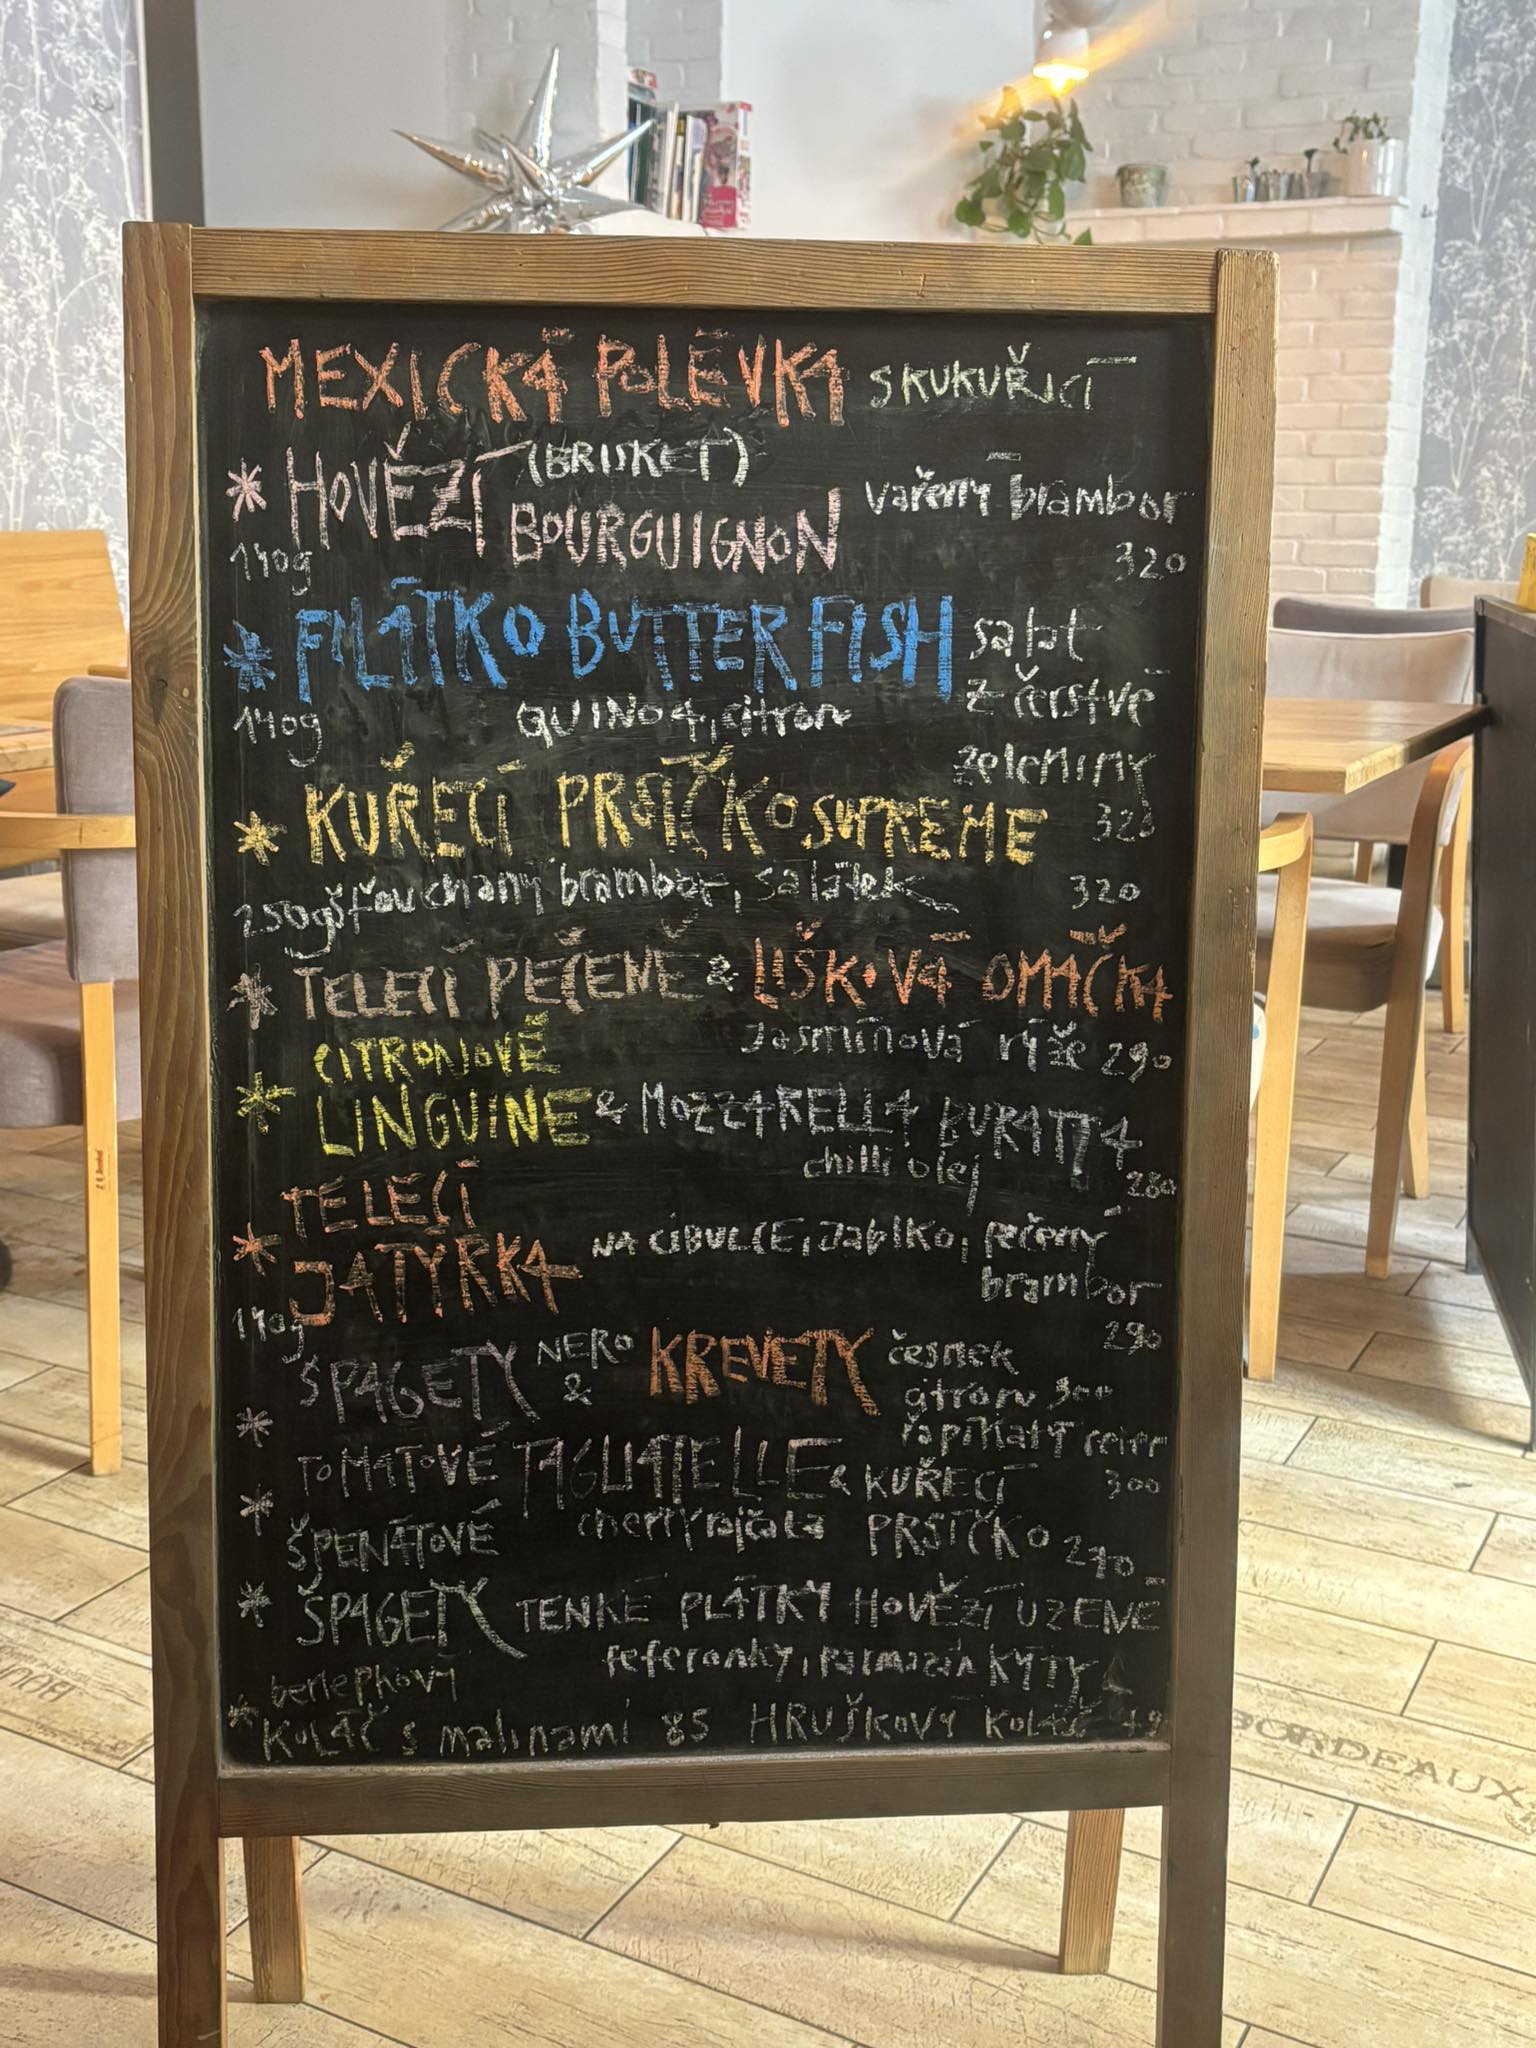 MEXICKÁ POLÉVKA S KUKUŘICÍ
* HOVĚZÍ (BRISKET) BOURGUIGNON vařený brambor
140g 320
* FILÁTKO BUTTERFISH salát
z čerstvé
140g QUINOA, citron
zeleniny
* KUŘECÍ PRSÍČKO SUPREME 320
250g šťouchaný brambor, salátek 320
* TELECÍ PEČENĚ & LIŠKOVÁ OMÁČKA
Jasmínová rýže 290
* CITRONOVÉ
LINGUINE & MOZZARELLA BURATTA
chilli olej 280
* TELECÍ
JATÝRKA NA CIBULCE, Jablko, pečený
brambor
140g 290
* ŠPAGETY NERO & KREVETY česnek
citron 300
řapíkatý
* TOMATOVÉ TAGLIATELLE & KUŘECÍ 300
cherry rajčata PRSÍČKO 270
* ŠPENÁTOVÉ
ŠPAGETY TENKÉ PLÁTKY HOVĚZÍ UZENÉ
feferonky, parmazán KÝTY
* KOLÁČ s malinami 85 HRUŠKOVÝ KOLÁČ 79